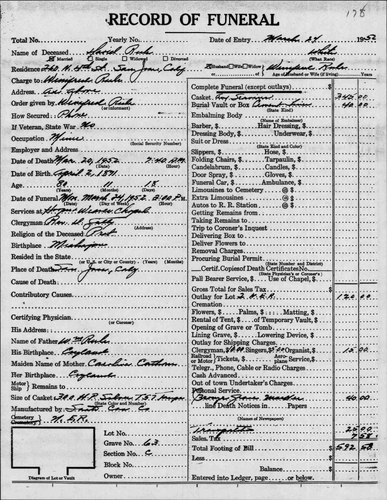 178
RECORD OF FUNERAL
Total No. Yearly No. Date of Entry March 24 1952
Name of Deceased David Ruhl White
Married Single Widowed Divorced (What Race)
Residence N. 4th St. San Jose, Calif
Husband, Wife or Widow of Winifred Ruhl
Age of Husband or Wife (If living) Years
Charge to Winifred Ruhl
Address As Above
Order given by Winifred Ruhl
How Secured Phone
If Veteran, State War No
Occupation Miner
(Social Security Number)
Employer and Address
Date of Death Mar 20, 1952 7:40 A.M.
Date of Birth April 2, 1871
Age 80 11 18
(Years) (Months) (Days)
Date of Funeral Mon. March 24, 1952 2:00 P.M.
Services at Chapel
Clergyman Rev.
Religion of the Deceased Prot
Birthplace Michigan
Resided in the State
(or U.S. or City or County) (Years) (Months)
Place of Death San Jose, Calif
Cause of Death
Contributory Causes
Certifying Physician
(or Coroner)
His Address
Name of Father Wm Ruhl
His Birthplace England
Maiden Name of Mother Caroline
Her Birthplace England
Motor Ship Remains to
Size of Casket
(State Color and Number)
Manufactured by Co
Cemetery
Lot No.
Grave No. 63
Section No. C
Block No.
Owner
Diagram of Lot or Vault
Complete Funeral (except outlays)
Casket 345.00
Burial Vault or Box 40.00
(State Kind)
Embalming Body
(State Kind)
Barber, Hair Dressing,
Dressing Body, Underwear,
Suit or Dress
(State Kind or Color)
Slippers, Hose,
Folding Chairs, Tarpaulin,
Candelabrum, Candles,
Door Spray, Gloves,
Funeral Car, Ambulance,
Limousines to Cemetery @
Extra Limousines @
Autos to R. R. Station @
Getting Remains from
Taking Remains to
Trip to Coroner's Inquest
Delivering Box to
Deliver Flowers to
Removal Charges
Procuring Burial Permit
(State Number and District)
Certif. Copies of Death Certificate No.
(State Physician's or Coroner's)
Pall Bearer Service, Use of Chapel,
Gross Total for Sales Tax
Outlay for Lot 120.00
Cremation
Flowers, Palms, Matting,
Rental of Tent, of Temporary Vault,
Opening of Grave or Tomb
Lining Grave, Lowering Device,
Outlay for Shipping Charges
Clergyman, Singers, Organist, 15.00
Railroad or Motor Tickets,
(State Extra Service)
Telegr., Phone, Cable or Radio Charges
Cash Advanced
Out of town Undertaker's Charges
Personal Service
Grave Marker 40.00
line Death Notices in Papers
(Names of Newspapers)
Transportation 25.00
Sales Tax 7.58
Total Footing of Bill 592.58
Less
Balance
Entered into Ledger, page or below.